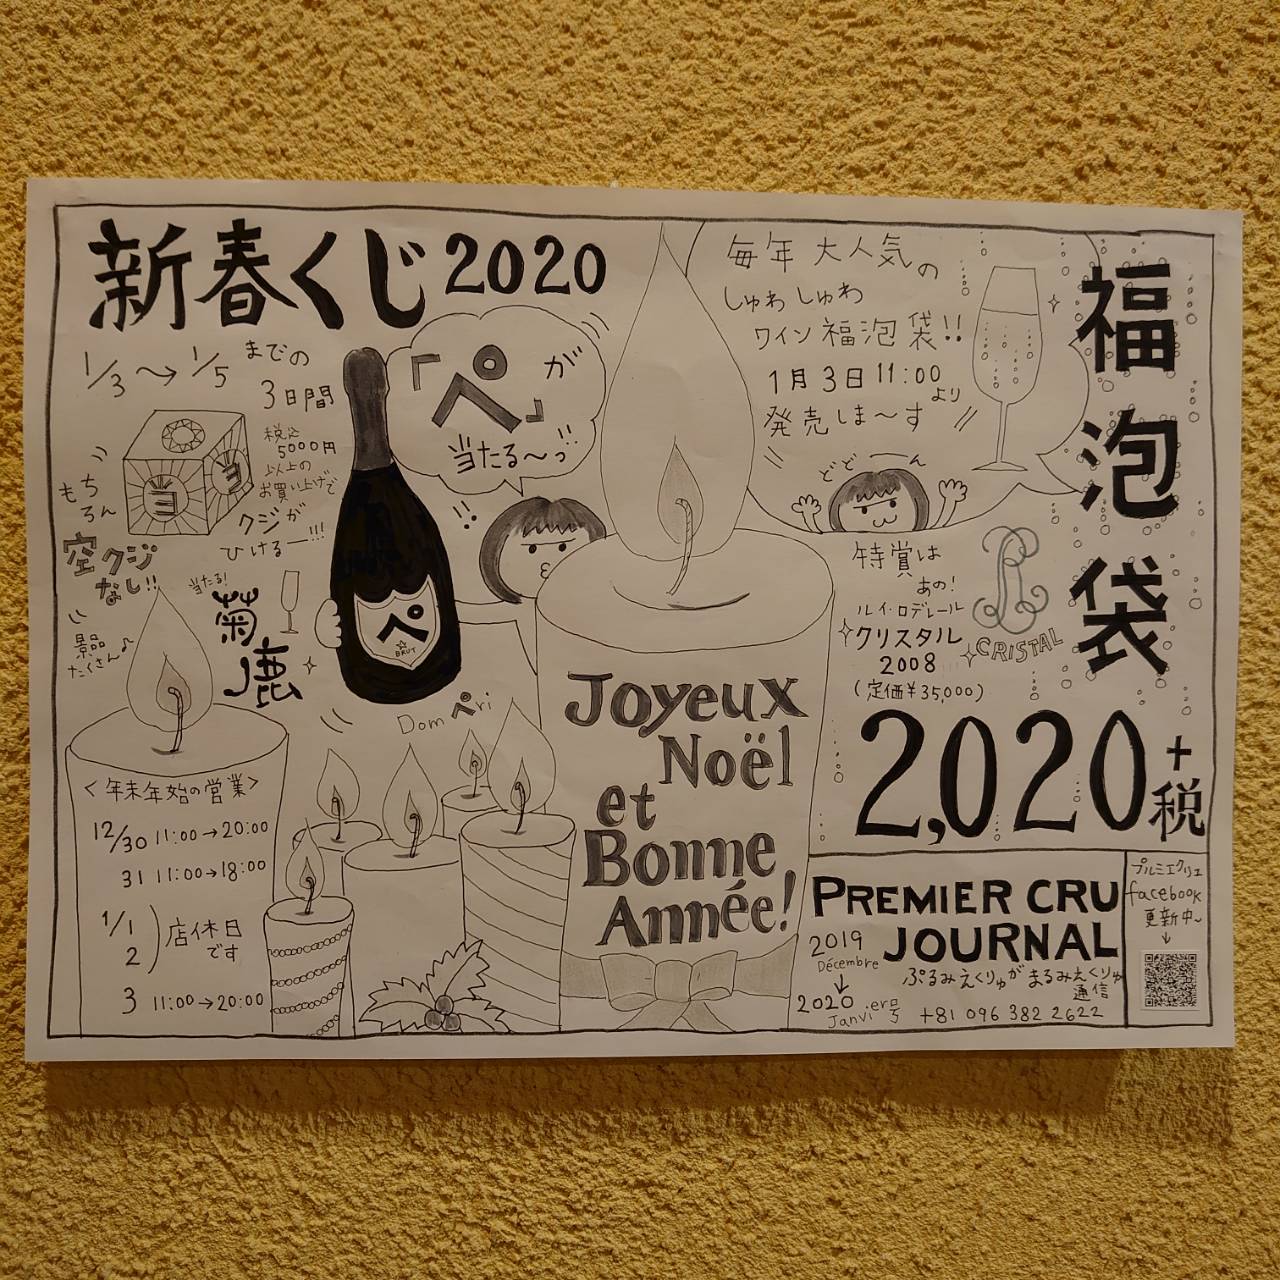 新春くじ2020
1/3〜→1/5までの
3日間
税込
5000円
以上の
お買い上げで
クジが
ひけるー!!!
もち
ろん
空クジ
なし!!
景品
たくさん♪
ヨ
ヨ
当たる!
菊鹿
「ペ」が
当たる〜っ!!
ペ
BRUT
Domペri
毎年大人気の
しゅわしゅわ
ワイン福泡袋!!
1月3日11:00より
発売しま〜す
福泡袋
どどーん
特賞は
あの!
ルイ・ロデレール
クリスタル
2008
(定価¥35,000)
CRISTAL
2,020+税
<年末年始の営業>
12/30 11:00→20:00
31 11:00→18:00
1/1
2
)店休日
です
3 11:00→20:00
Joyeux
Noël
et
Bonne
Année!
PREMIER CRU
JOURNAL
2019
Décembre
↓
2020
Janvier号
ぷるみえくりゅがまるみえくりゅ
通信
+81 096 382 2622
プルミエクリュ
facebook
更新中〜
↓